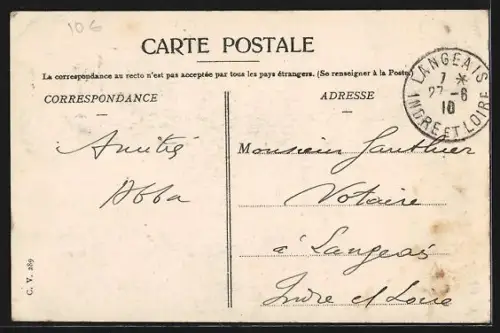 106
CARTE POSTALE
La correspondance au recto n'est pas acceptée par tous les pays étrangers. (Se renseigner à la Poste)
CORRESPONDANCE
ADRESSE
LANGEAIS
7 *
27-6
10
INDRE ET LOIRE
Amitiés
Abba
Monsieur Gauthier
Notaire
à Langeais
Indre et Loire
C. V. 289